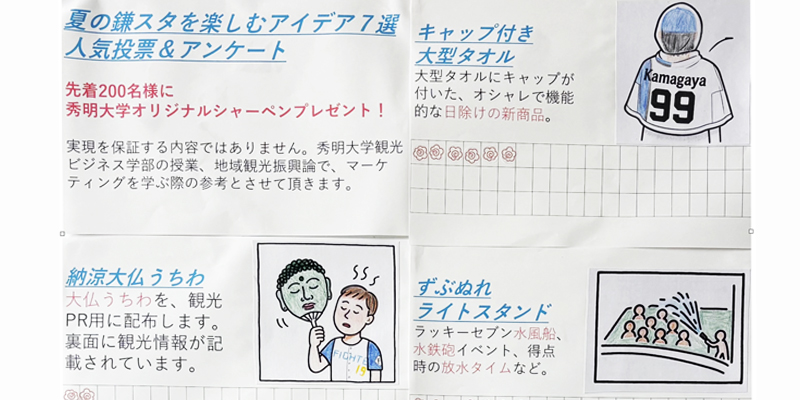 夏の鎌スタを楽しむアイデア７選
人気投票＆アンケート
先着200名様に
秀明大学オリジナルシャーペンプレゼント！
実現を保証する内容ではありません。秀明大学観光
ビジネス学部の授業、地域観光振興論で、マーケ
ティングを学ぶ際の参考とさせて頂きます。
キャップ付き
大型タオル
大型タオルにキャップが
付いた、オシャレで機能
的な日除けの新商品。
Kamagaya
99
納涼大仏うちわ
大仏うちわを、観光
PR用に配布します。
裏面に観光情報が記
載されています。
FIGHTE
19
ずぶぬれ
ライトスタンド
ラッキーセブン水風船、
水鉄砲イベント、得点
時の放水タイムなど。